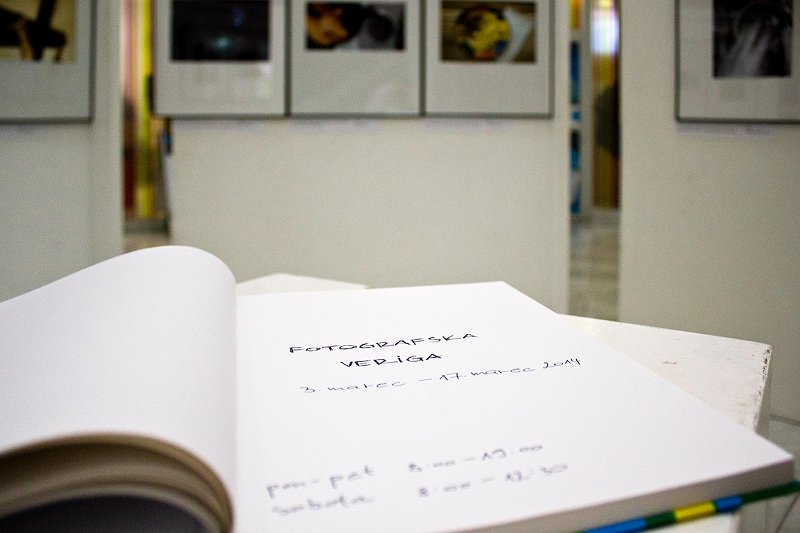 FOTOGRAFSKA
VERIGA
3. marec – 17. marec 2014
pon-pet 8:00 – 19:00
sobota 8:00 – 12:30